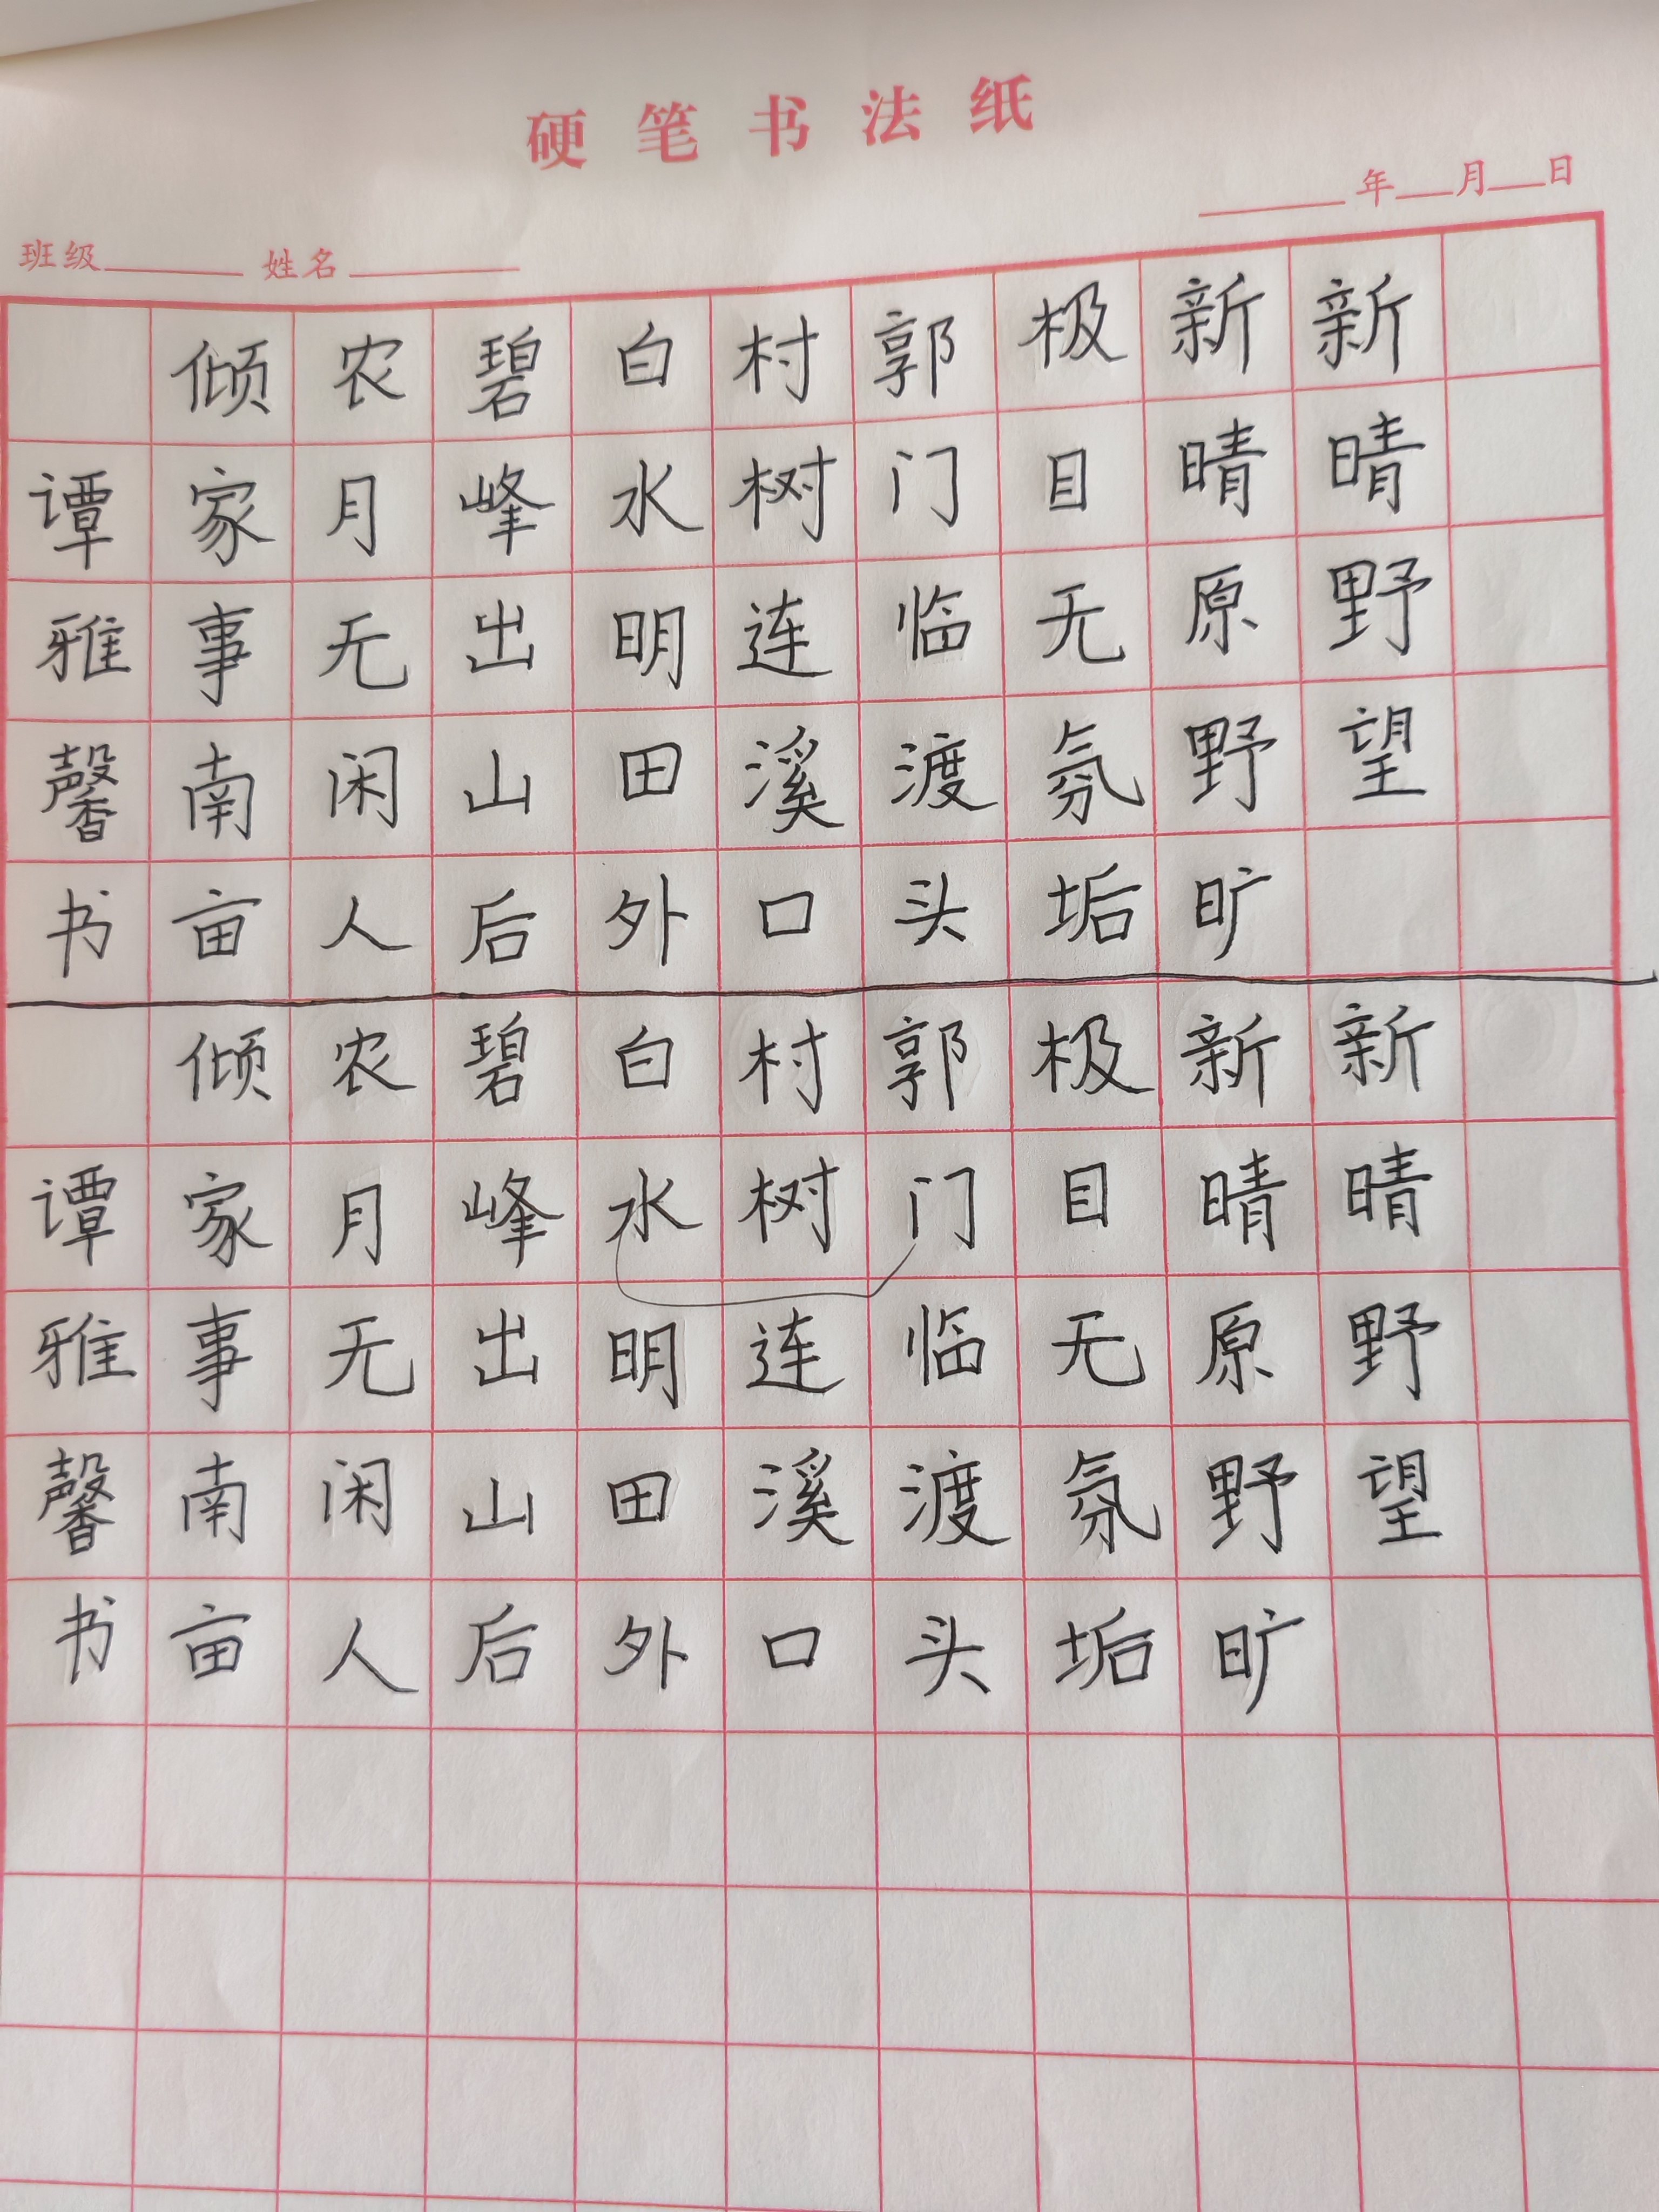 硬笔书法纸
年 月 日
班级 姓名
新晴野望
新晴原野旷
极目无氛垢
郭门临渡头
村树连溪口
白水明田外
碧峰出山后
农月无闲人
倾家事南亩
谭雅馨书
新晴野望
新晴原野旷
极目无氛垢
郭门临渡头
村树连溪口
白水明田外
碧峰出山后
农月无闲人
倾家事南亩
谭雅馨书